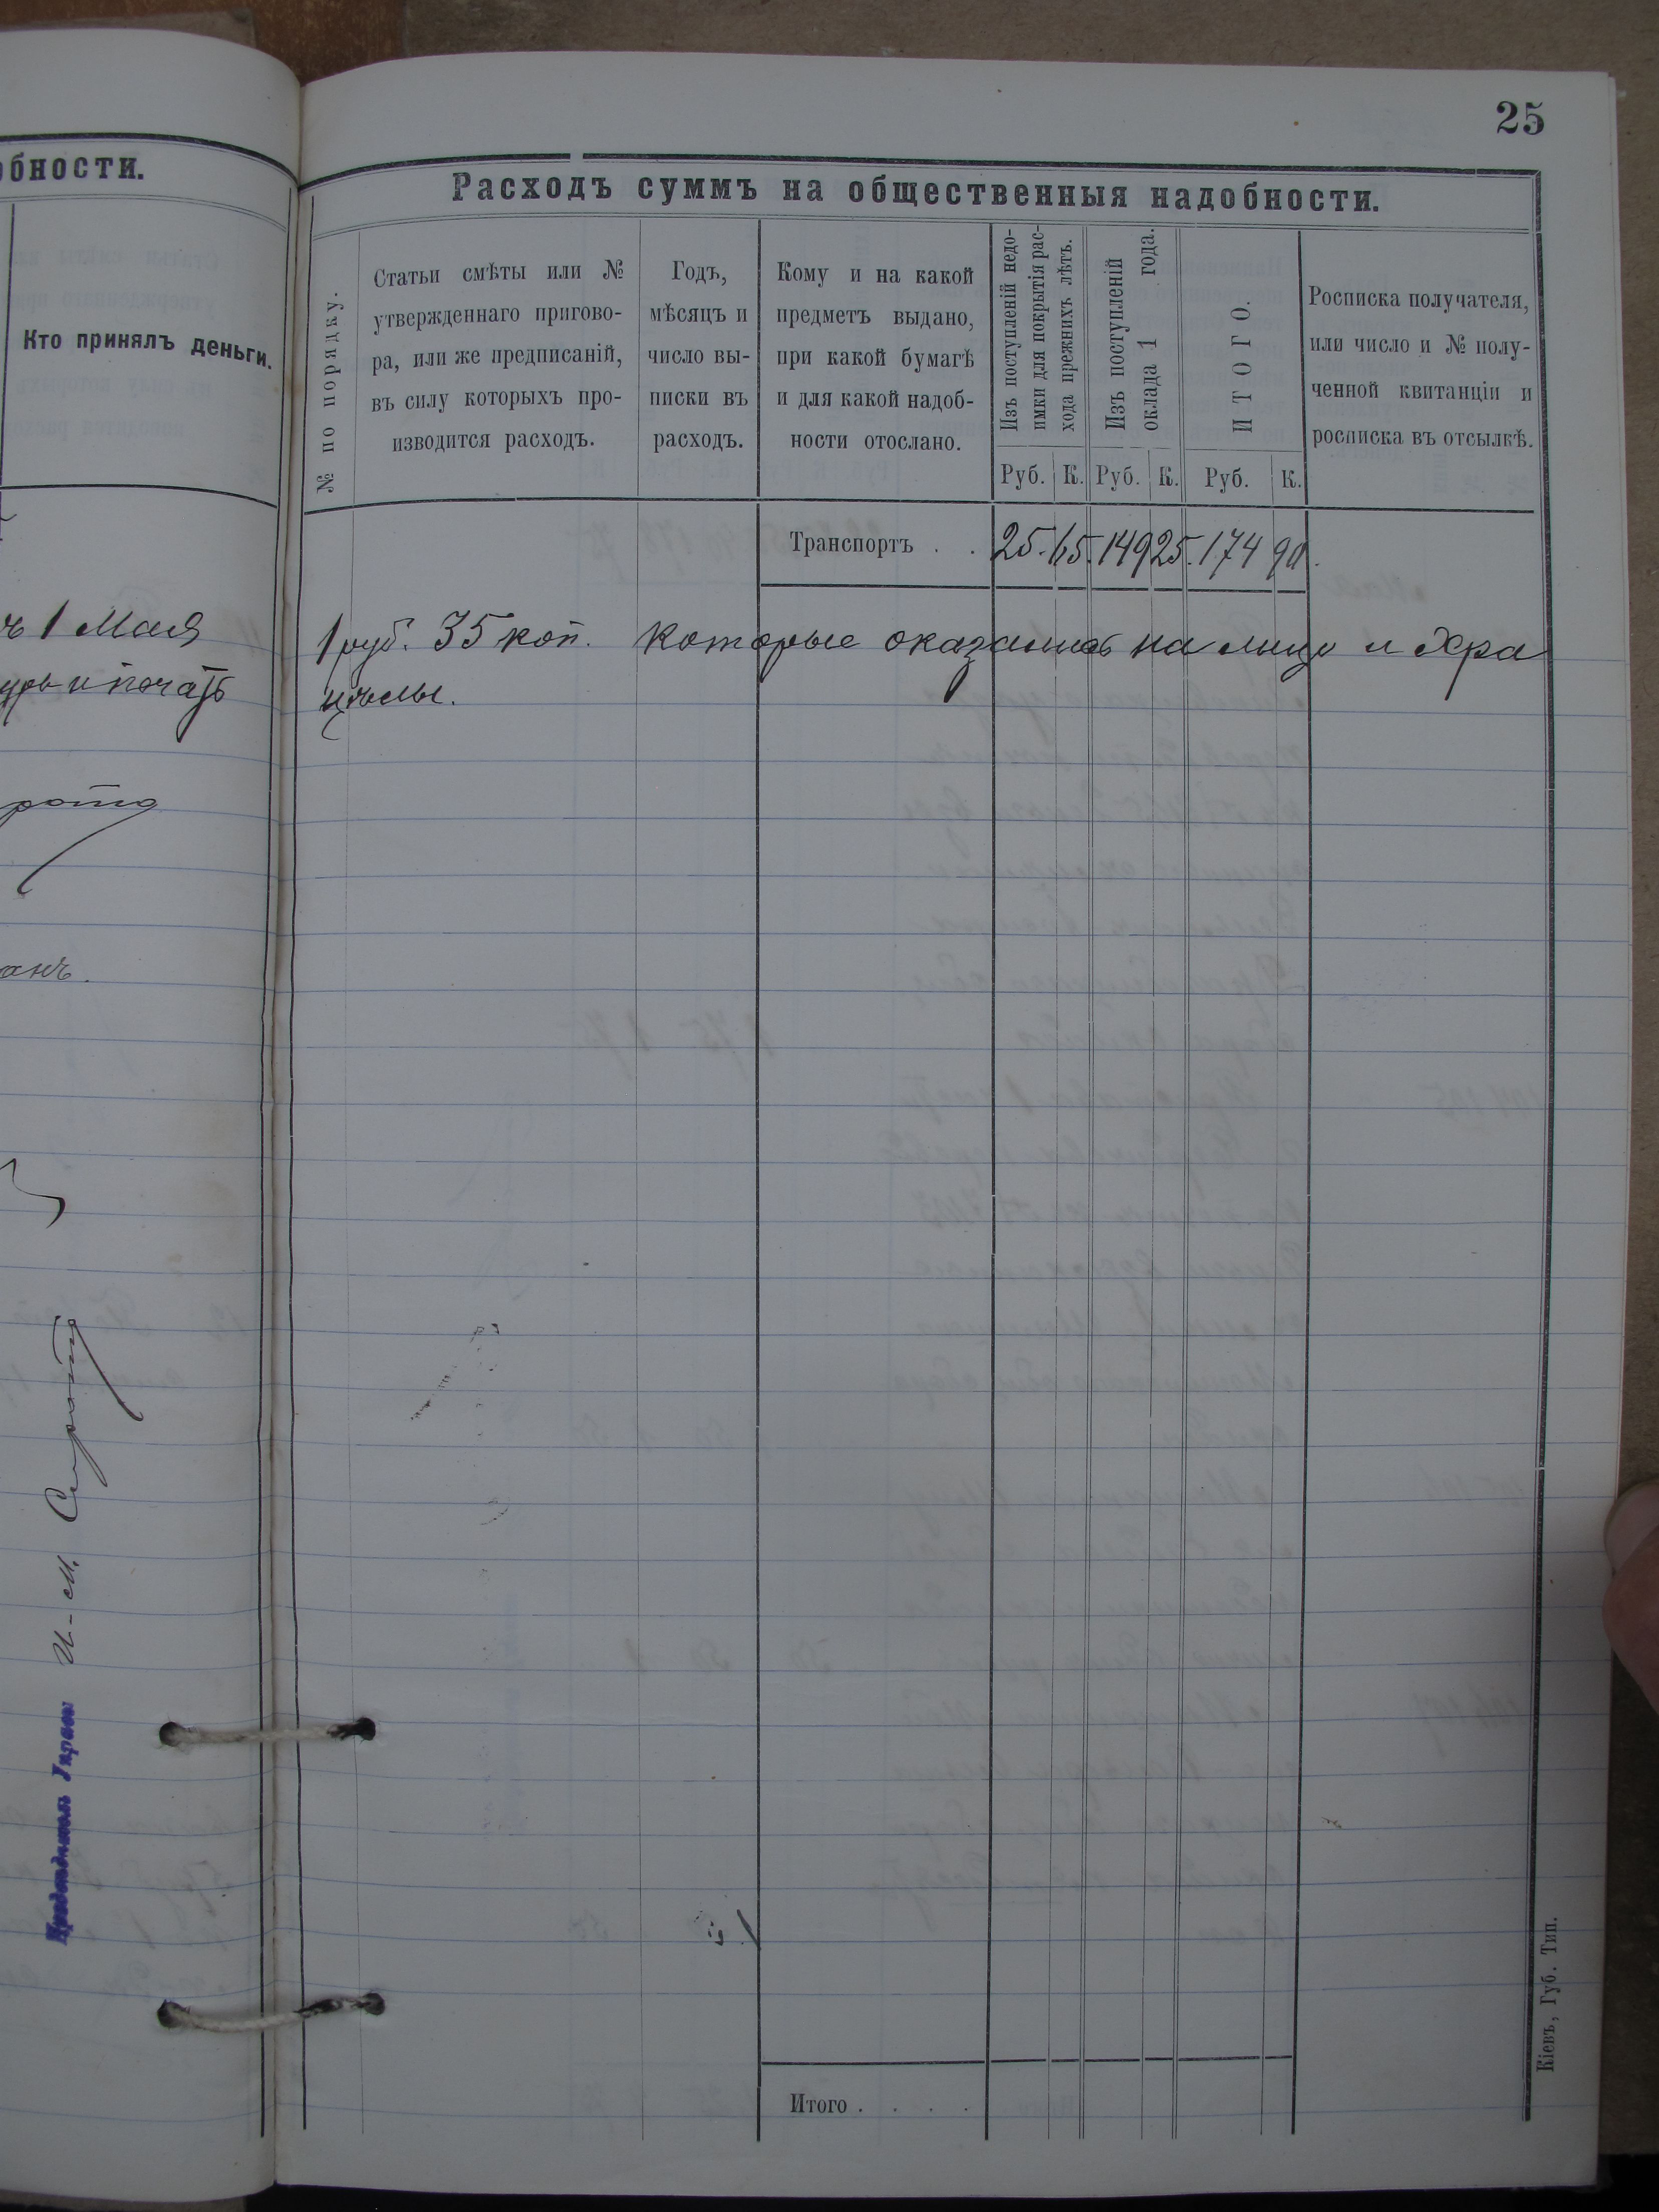 обности.
Кто принялъ деньги.
1 Мая
печать
анъ.
И. М. Сирота
25
Расходъ суммъ на общественныя надобности.
№ по порядку.
Статьи смѣты или №
утвержденнаго пригово-
ра, или же предписаній,
въ силу которыхъ про-
изводится расходъ.
Годъ,
мѣсяцъ и
число вы-
писки въ
расходъ.
Кому и на какой
предметъ выдано,
при какой бумагѣ
и для какой надоб-
ности отослано.
Изъ поступленій недо-
имки для покрытія рас-
хода прежнихъ лѣтъ.
Изъ поступленій
оклада 1 года.
ИТОГО.
Росписка получателя,
или число и № полу-
ченной квитанціи и
росписка въ отсылкѣ.
Руб. К. Руб. К. Руб. К.
Транспортъ . . 25. 65. 149 25. 174 90.
1 руб. 35 коп. которые оказались на лицо и Хра
цѣлы.
Итого . . . .
Кіевъ, Губ. Тип.